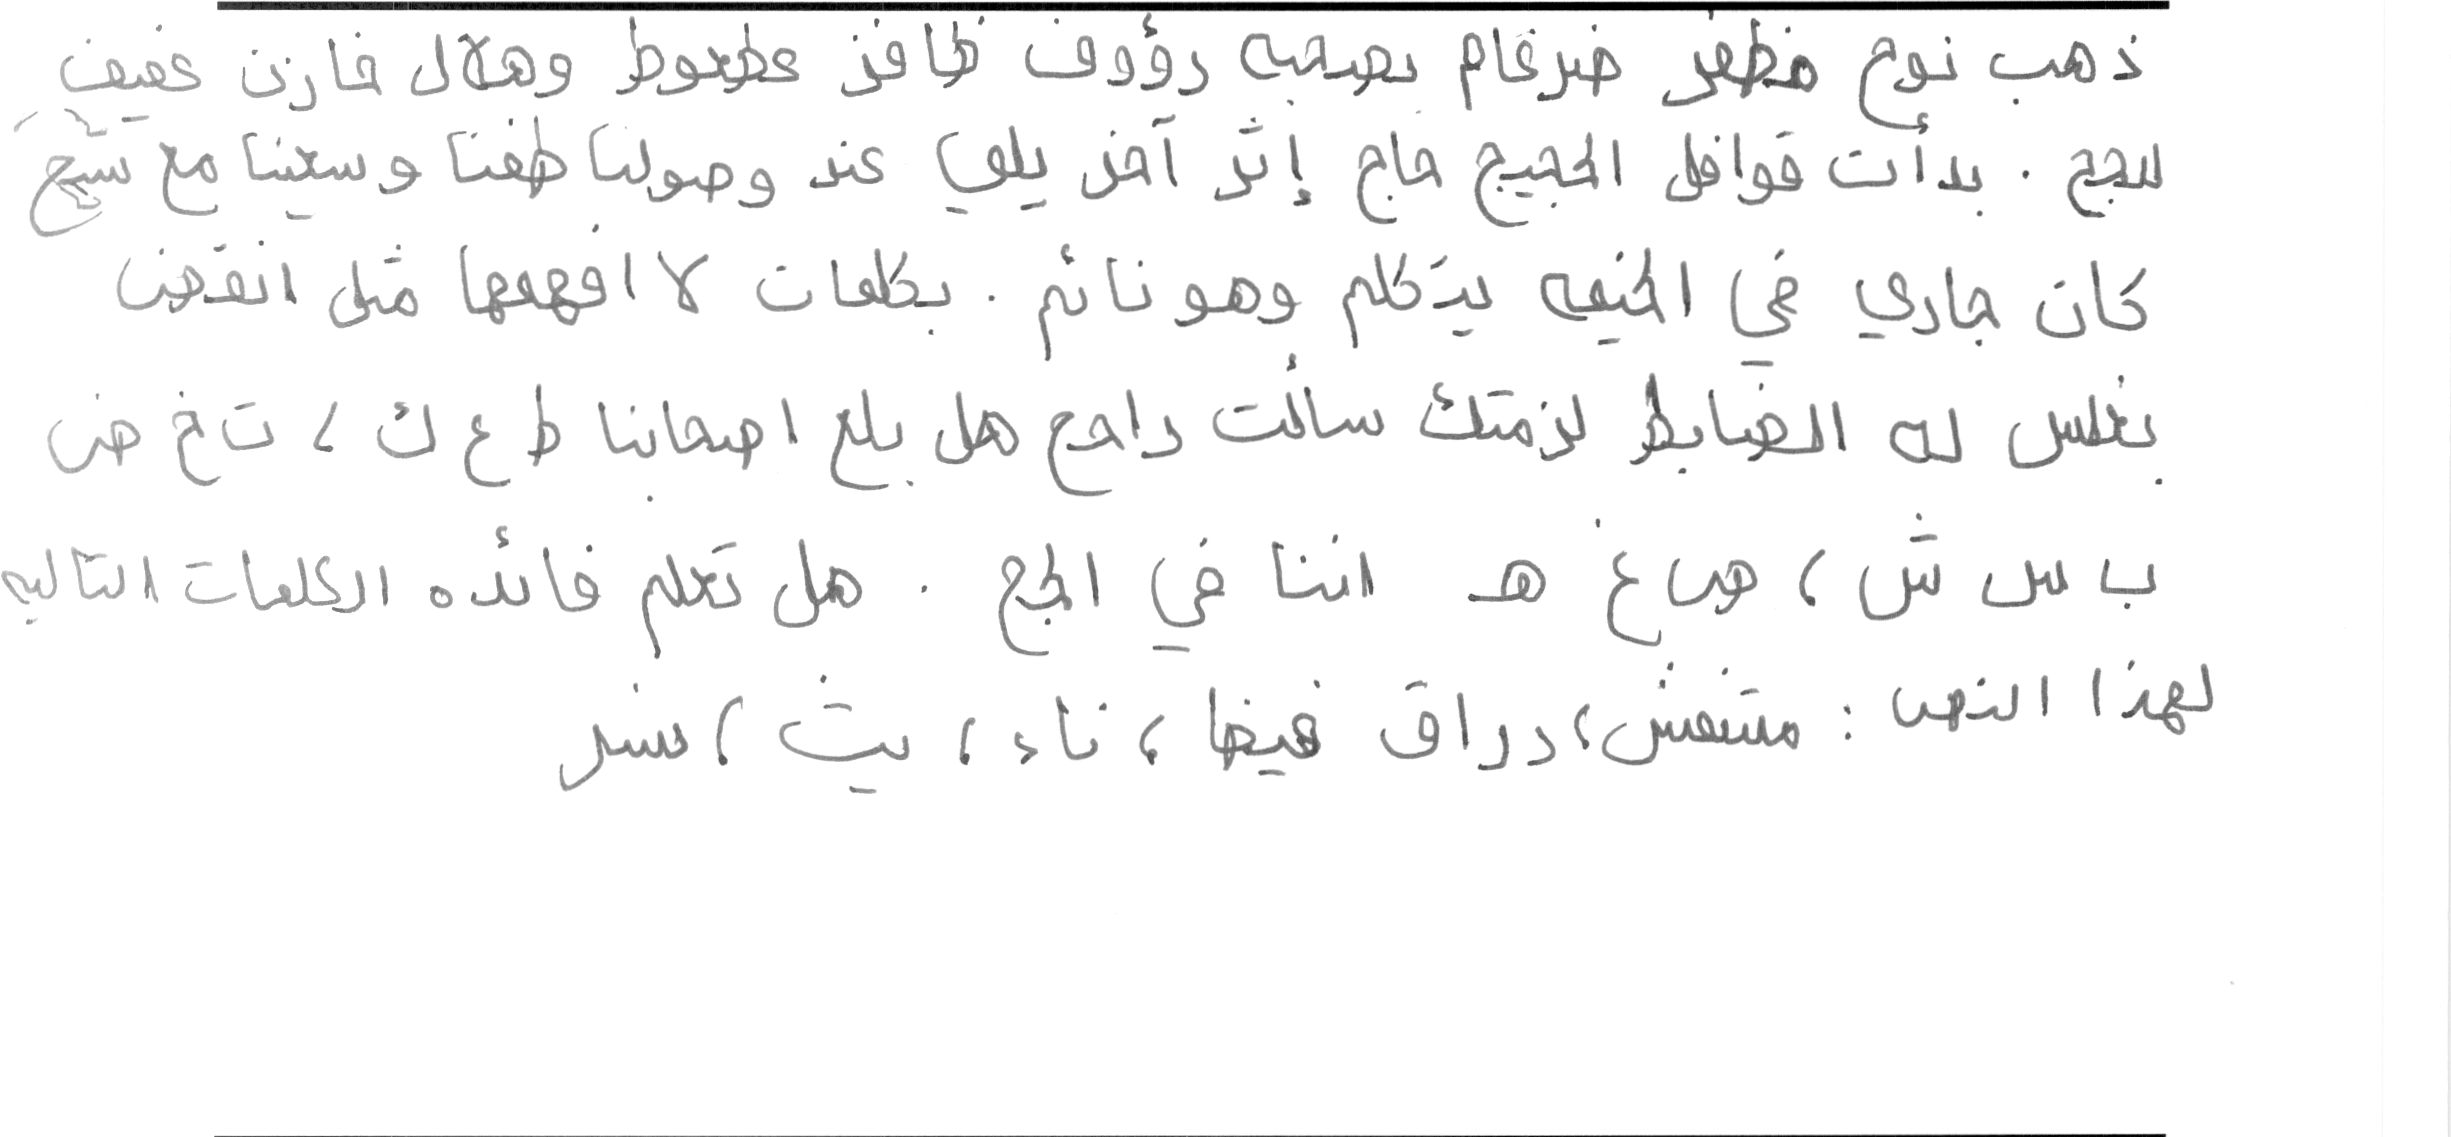 ذهب نوح مظفر ضرغام بصحبه رؤوف ظافر عطعوط وهلال خازن عفيف
للحج . بدأت قوافل الحجيج حاج إثر آخر يلبي عند وصولنا طفنا وسعينا مع شيخ
كان جاري في الخيمه يتكلم وهو نائم . بكلمات لا افهمها مثل انقهن
بغلس له الضابط لزمتك سألت راجح هل بلع اصحابنا ط ع ك ، ت خ ض
ب س ش ، ص غ هـ اننا في الحج . هل تعلم فائده الكلمات التاليه
لهذا النص : مشمش، دراق فيضا ، ناء ، يث ،